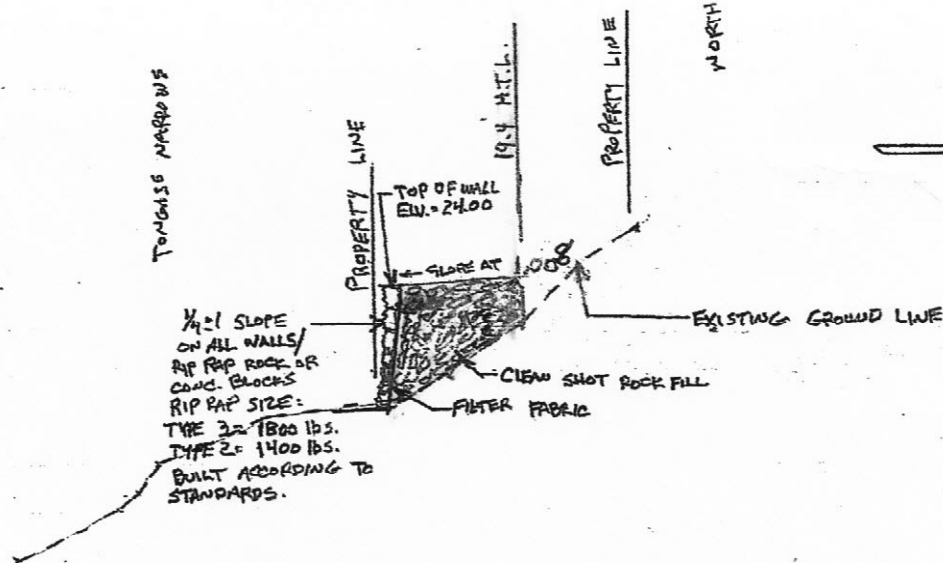 TONGASS NARROWS
PROPERTY LINE
19.4 H.T.L.
PROPERTY LINE
NORTH
TOP OF WALL
ELV.=24.00
SLOPE AT
.008
1/4:1 SLOPE
ON ALL WALLS/
RIP RAP ROCK OR
CONC. BLOCKS
RIP RAP SIZE:
TYPE 3= 1800 lbs.
TYPE 2= 1400 lbs.
BUILT ACCORDING TO
STANDARDS.
EXISTING GROUND LINE
CLEAN SHOT ROCK FILL
FILTER FABRIC